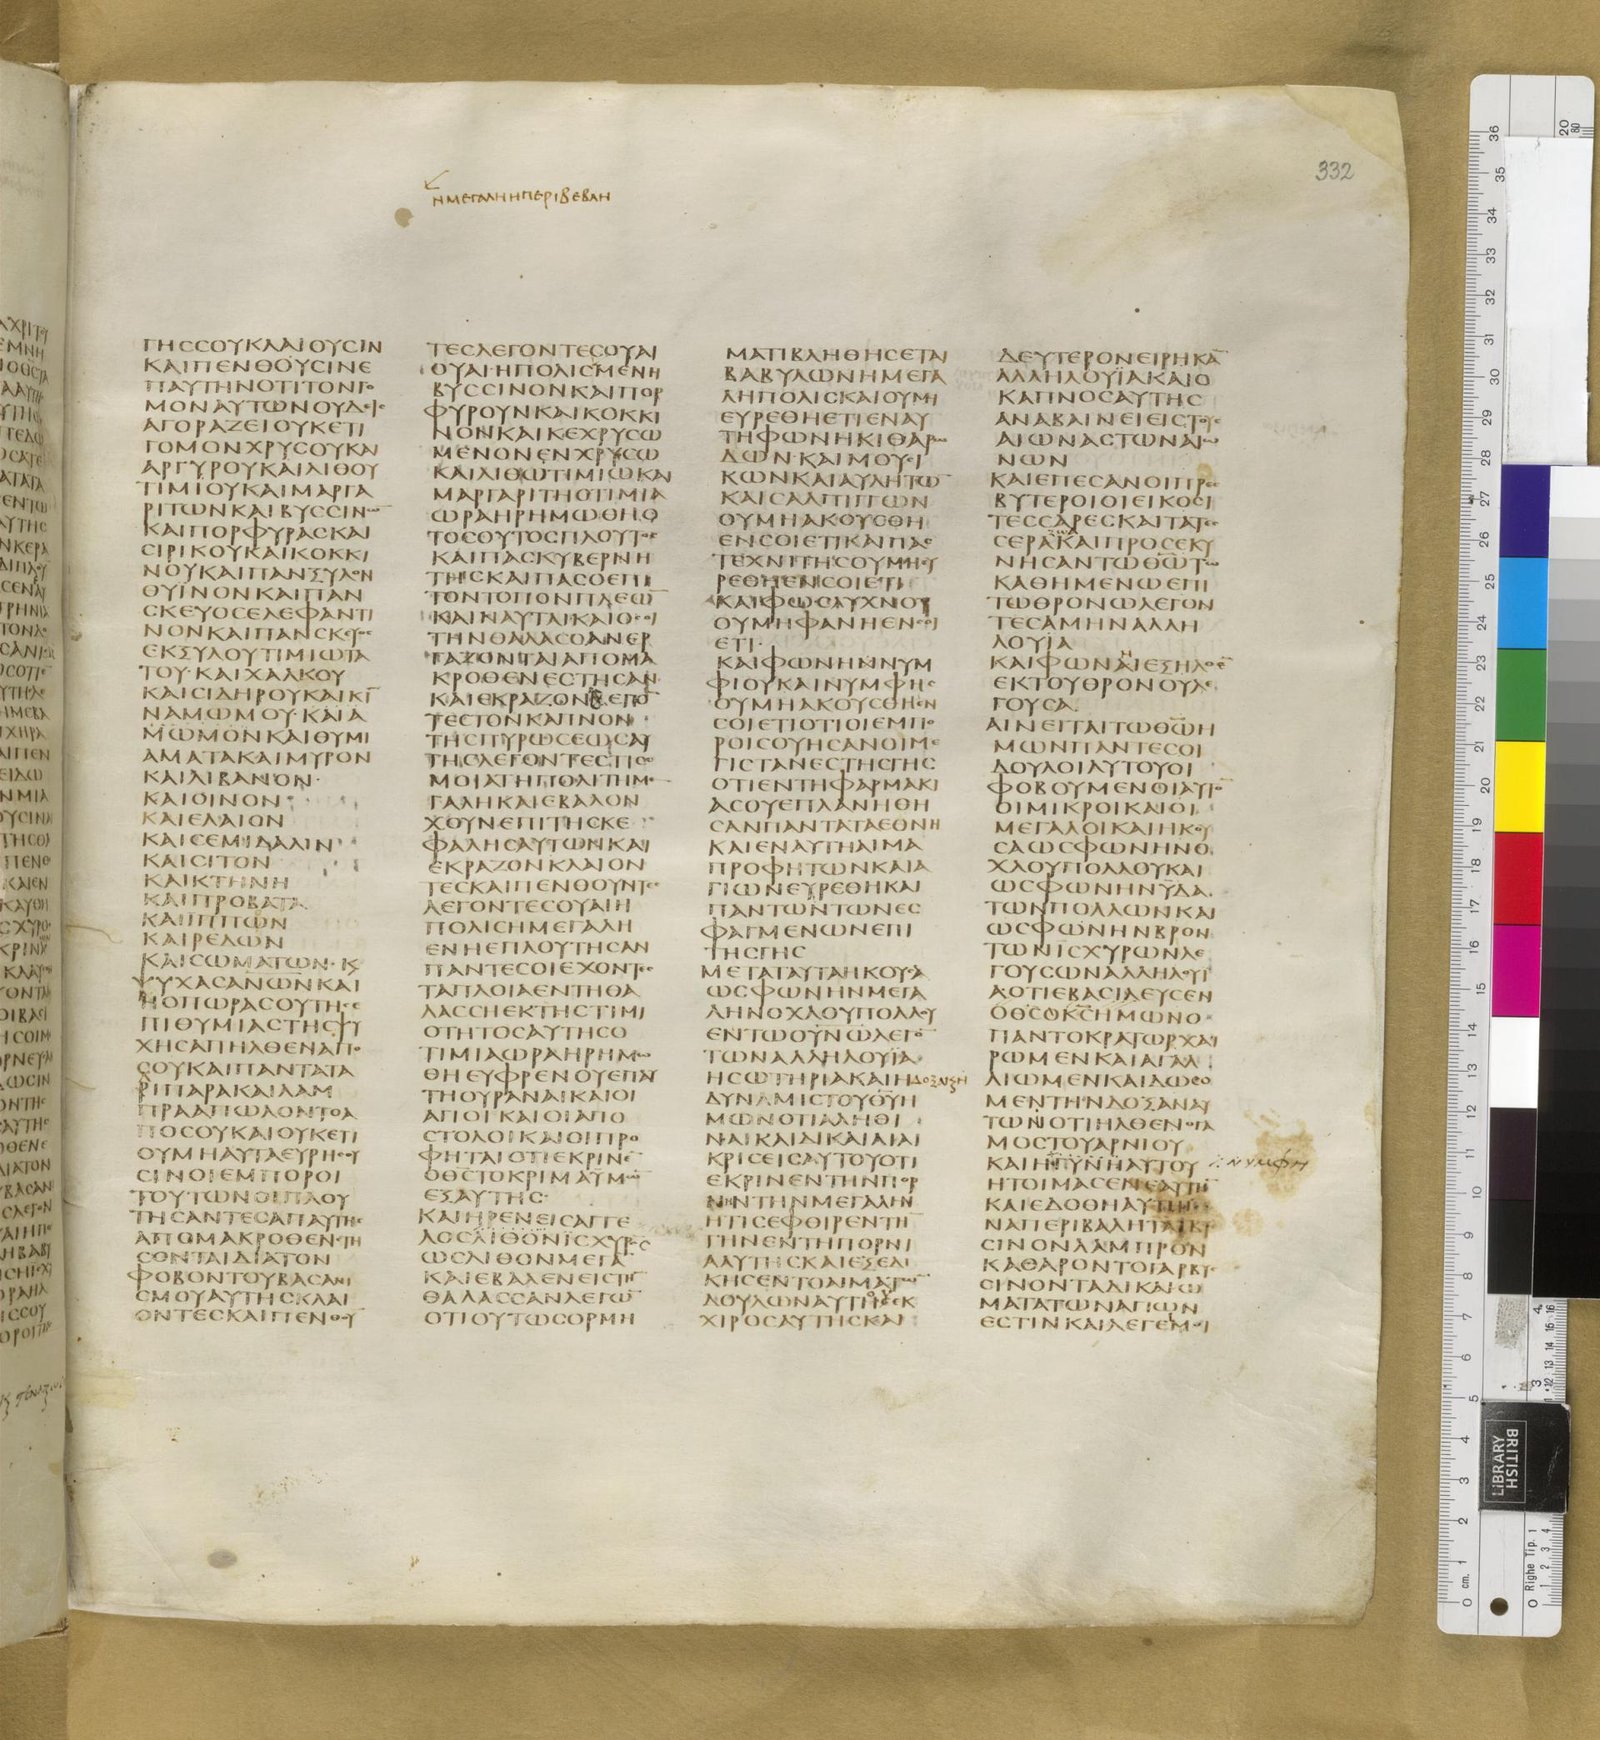 332
ΗΜΕΓΑΛΗΗΠΕΡΙΒΕΒΛΗ
ΓΗϹϹΟΥΚΛΑΙΟΥϹΙΝ
ΚΑΙΠΕΝΘΟΥϹΙΝΕ
ΠΑΥΤΗΝΟΤΙΤΟΝΓΟ
ΜΟΝΑΥΤΩΝΟΥΔΙϹ
ΑΓΟΡΑΖΕΙΟΥΚΕΤΙ
ΓΟΜΟΝΧΡΥϹΟΥΚΑΙ
ΑΡΓΥΡΟΥΚΑΙΛΙΘΟΥ
ΤΙΜΙΟΥΚΑΙΜΑΡΓΑ
ΡΙΤΩΝΚΑΙΒΥϹϹΙΝΩ
ΚΑΙΠΟΡΦΥΡΑϹΚΑΙ
ϹΙΡΙΚΟΥΚΑΙΚΟΚΚΙ
ΝΟΥΚΑΙΠΑΝΞΥΛΟΝ
ΘΥΙΝΟΝΚΑΙΠΑΝ
ϹΚΕΥΟϹΕΛΕΦΑΝΤΙ
ΝΟΝΚΑΙΠΑΝϹΚΕΥΟϹ
ΕΚΞΥΛΟΥΤΙΜΙΩΤΑ
ΤΟΥ·ΚΑΙΧΑΛΚΟΥ
ΚΑΙϹΙΔΗΡΟΥΚΑΙΚΙ
ΝΑΜΩΜΟΥ·ΚΑΙΑ
ΜΩΜΟΝΚΑΙΘΥΜΙ
ΑΜΑΤΑΚΑΙΜΥΡΟΝ
ΚΑΙΛΙΒΑΝΟΝ·
ΚΑΙΟΙΝΟΝ
ΚΑΙΕΛΑΙΟΝ
ΚΑΙϹΕΜΙΔΑΛΙΝ
ΚΑΙϹΙΤΟΝ
ΚΑΙΚΤΗΝΗ
ΚΑΙΠΡΟΒΑΤΑ
ΚΑΙΙΠΠΩΝ
ΚΑΙΡΕΔΩΝ
ΚΑΙϹΩΜΑΤΩΝ·Κ
ΨΥΧΑϹΑΝΩΝΚΑΙ
ΗΟΠΩΡΑϹΟΥΤΗϹΕ
ΠΙΘΥΜΙΑϹΤΗϹΨΥ
ΧΗϹΑΠΗΛΘΕΝΑΠΟ
ϹΟΥΚΑΙΠΑΝΤΑΤΑ
ΛΙΠΑΡΑΚΑΙΛΑΜ
ΠΡΑΑΠΩΛΟΝΤΟΑ
ΠΟϹΟΥΚΑΙΟΥΚΕΤΙ
ΟΥΜΗΑΥΤΑΕΥΡΗϹΟΥ
ϹΙΝΟΙΕΜΠΟΡΟΙ
ΤΟΥΤΩΝΟΙΠΛΟΥ
ΤΗϹΑΝΤΕϹΑΠΑΥΤΗϹ
ΑΠΟΜΑΚΡΟΘΕΝϹΤΗ
ϹΟΝΤΑΙΔΙΑΤΟΝ
ΦΟΒΟΝΤΟΥΒΑϹΑΝΙ
ϹΜΟΥΑΥΤΗϹΚΛΑΙ
ΟΝΤΕϹΚΑΙΠΕΝΘΟΥ
ΤΕϹΛΕΓΟΝΤΕϹΟΥΑΙ
ΟΥΑΙ·ΗΠΟΛΙϹΜΕΝΗ
ΒΥϹϹΙΝΟΝΚΑΙΠΟΡ
ΦΥΡΟΥΝΚΑΙΚΟΚΚΙ
ΝΟΝΚΑΙΚΕΧΡΥϹΩ
ΜΕΝΟΝΕΝΧΡΥϹΩ
ΚΑΙΛΙΘΩΤΙΜΙΩΚΑΙ
ΜΑΡΓΑΡΙΤΗΟΤΙΜΙΑ
ΩΡΑΗΡΗΜΩΘΗΟ
ΤΟϹΟΥΤΟϹΠΛΟΥΤΟϹ
ΚΑΙΠΑϹΚΥΒΕΡΝΗ
ΤΗϹΚΑΙΠΑϹΟΕΠΙ
ΤΟΝΤΟΠΟΝΠΛΕΩ
ΚΑΙΝΑΥΤΑΙΚΑΙΟϹΟΙ
ΤΗΝΘΑΛΑϹϹΑΝΕΡ
ΓΑΖΟΝΤΑΙΑΠΟΜΑ
ΚΡΟΘΕΝΕϹΤΗϹΑΝ
ΚΑΙΕΚΡΑΖΟΝΒΛΕΠΟ
ΤΕϹΤΟΝΚΑΠΝΟΝ
ΤΗϹΠΥΡΩϹΕΩϹΑΥ
ΤΗϹΛΕΓΟΝΤΕϹΤΙϹΟ
ΜΟΙΑΤΗΠΟΛΙΤΗΜΕ
ΓΑΛΗΚΑΙΕΒΑΛΟΝ
ΧΟΥΝΕΠΙΤΗϹΚΕ
ΦΑΛΗϹΑΥΤΩΝΚΑΙ
ΕΚΡΑΖΟΝΚΛΑΙΟΝ
ΤΕϹΚΑΙΠΕΝΘΟΥΝΤΕϹ
ΛΕΓΟΝΤΕϹΟΥΑΙΗ
ΠΟΛΙϹΗΜΕΓΑΛΗ
ΕΝΗΕΠΛΟΥΤΗϹΑΝ
ΠΑΝΤΕϹΟΙΕΧΟΝΤΕϹ
ΤΑΠΛΟΙΑΕΝΤΗΘΑ
ΛΑϹϹΗΕΚΤΗϹΤΙΜΙ
ΟΤΗΤΟϹΑΥΤΗϹΟ
ΤΙΜΙΑΩΡΑΗΡΗΜΩ
ΘΗΕΥΦΡΕΝΟΥΕΠΑΥ
ΤΗΟΥΡΑΝΑΙΚΑΙΟΙ
ΑΓΙΟΙΚΑΙΟΙΑΠΟ
ϹΤΟΛΟΙΚΑΙΟΙΠΡΟ
ΦΗΤΑΙΟΤΙΕΚΡΙΝΕ
ΟΘϹΤΟΚΡΙΜΑΥΜΩ
ΕΞΑΥΤΗϹ·
ΚΑΙΗΡΕΝΕΙϹΑΓΓΕ
ΛΟϹΛΙΘΟΝΙϹΧΥΡΟϹ
ΩϹΛΙΘΟΝΜΕΓΑ
ΚΑΙΕΒΑΛΕΝΕΙϹΤΗ
ΘΑΛΑϹϹΑΝΛΕΓΩ
ΟΤΙΟΥΤΩϹΟΡΜΗ
ΜΑΤΙΒΛΗΘΗϹΕΤΑΙ
ΒΑΒΥΛΩΝΗΜΕΓΑ
ΛΗΠΟΛΙϹΚΑΙΟΥΜΗ
ΕΥΡΕΘΗΕΤΙΕΝΑΥ
ΤΗΦΩΝΗΚΙΘΑΡΩ
ΔΩΝ·ΚΑΙΜΟΥϹΙ
ΚΩΝΚΑΙΑΥΛΗΤΩ
ΚΑΙϹΑΛΠΙΓΓΩΝ
ΟΥΜΗΑΚΟΥϹΘΗ
ΕΝϹΟΙΕΤΙΚΑΙΠΑϹ
ΤΕΧΝΙΤΗϹΟΥΜΗΕΥ
ΡΕΘΗΕΝϹΟΙΕΤΙ
ΚΑΙΦΩϹΛΥΧΝΟΥ
ΟΥΜΗΦΑΝΗΕΝϹΟΙ
ΕΤΙ·
ΚΑΙΦΩΝΗΝΝΥΜ
ΦΙΟΥΚΑΙΝΥΜΦΗϹ
ΟΥΜΗΑΚΟΥϹΘΗΕΝ
ϹΟΙΕΤΙΟΤΙΟΙΕΜΠΟ
ΡΟΙϹΟΥΗϹΑΝΟΙΜΕ
ΓΙϹΤΑΝΕϹΤΗϹΓΗϹ
ΟΤΙΕΝΤΗΦΑΡΜΑΚΙ
ΑϹΟΥΕΠΛΑΝΗΘΗ
ϹΑΝΠΑΝΤΑΤΑΕΘΝΗ
ΚΑΙΕΝΑΥΤΗΑΙΜΑ
ΠΡΟΦΗΤΩΝΚΑΙΑ
ΓΙΩΝΕΥΡΕΘΗΚΑΙ
ΠΑΝΤΩΝΤΩΝΕϹ
ΦΑΓΜΕΝΩΝΕΠΙ
ΤΗϹΓΗϹ
ΜΕΤΑΤΑΥΤΑΗΚΟΥϹΑ
ΩϹΦΩΝΗΝΜΕΓΑ
ΛΗΝΟΧΛΟΥΠΟΛΛΟΥ
ΕΝΤΩΟΥΝΩΛΕΓΟ
ΤΩΝΑΛΛΗΛΟΥΙΑ
ΗϹΩΤΗΡΙΑΚΑΙΗΔΟΞΑΚΑΙΗ
ΔΥΝΑΜΙϹΤΟΥΘΥΗ
ΜΩΝΟΤΙΑΛΗΘΙ
ΝΑΙΚΑΙΔΙΚΑΙΑΙΑΙ
ΚΡΙϹΕΙϹΑΥΤΟΥΟΤΙ
ΕΚΡΙΝΕΝΤΗΝΠΟΡ
ΝΗΝΤΗΝΜΕΓΑΛΗΝ
ΗΤΙϹΕΦΘΙΡΕΝΤΗ
ΓΗΝΕΝΤΗΠΟΡΝΙ
ΑΑΥΤΗϹΚΑΙΕΞΕΔΙ
ΚΗϹΕΝΤΟΑΙΜΑΤΩ
ΔΟΥΛΩΝΑΥΤΟΥΕΚ
ΧΙΡΟϹΑΥΤΗϹΚΑΙ
ΔΕΥΤΕΡΟΝΕΙΡΗΚΑ
ΑΛΛΗΛΟΥΙΑΚΑΙΟ
ΚΑΠΝΟϹΑΥΤΗϹ
ΑΝΑΒΑΙΝΕΙΕΙϹΤΟΥϹ
ΑΙΩΝΑϹΤΩΝΑΙΩ
ΝΩΝ
ΚΑΙΕΠΕϹΑΝΟΙΠΡΕϹ
ΒΥΤΕΡΟΙΟΙΕΙΚΟϹΙ
ΤΕϹϹΑΡΕϹΚΑΙΤΑΤΕϹ
ϹΕΡΑΚΑΙΠΡΟϹΕΚΥ
ΝΗϹΑΝΤΩΘΩΤΩ
ΚΑΘΗΜΕΝΩΕΠΙ
ΤΩΘΡΟΝΩΛΕΓΟΝ
ΤΕϹΑΜΗΝΑΛΛΗ
ΛΟΥΙΑ
ΚΑΙΦΩΝΑΙΕΞΗΛΘΟ
ΕΚΤΟΥΘΡΟΝΟΥΛΕ
ΓΟΥϹΑ·
ΑΙΝΕΙΤΑΙΤΩΘΩΗ
ΜΩΝΠΑΝΤΕϹΟΙ
ΔΟΥΛΟΙΑΥΤΟΥΟΙ
ΦΟΒΟΥΜΕΝΟΙΑΥΤΟ
ΟΙΜΙΚΡΟΙΚΑΙΟΙ
ΜΕΓΑΛΟΙΚΑΙΗΚΟΥ
ϹΑΩϹΦΩΝΗΝΟ
ΧΛΟΥΠΟΛΛΟΥΚΑΙ
ΩϹΦΩΝΗΝΥΔΑ
ΤΩΝΠΟΛΛΩΝΚΑΙ
ΩϹΦΩΝΗΝΒΡΟΝ
ΤΩΝΙϹΧΥΡΩΝΛΕ
ΓΟΥϹΩΝΑΛΛΗΛΟΥΙ
ΑΟΤΙΕΒΑϹΙΛΕΥϹΕΝ
ΟΘϹΟΚϹΗΜΩΝΟ
ΠΑΝΤΟΚΡΑΤΩΡΧΑΙ
ΡΩΜΕΝΚΑΙΑΓΑΛ
ΛΙΩΜΕΝΚΑΙΔΩϹΟ
ΜΕΝΤΗΝΔΟΞΑΝΑΥ
ΤΩΝΟΤΙΗΛΘΕΝΟΓΑ
ΜΟϹΤΟΥΑΡΝΙΟΥ
ΚΑΙΗΓΥΝΗΑΥΤΟΥ ΝΥΜΦΗ
ΗΤΟΙΜΑϹΕΝΕΑΥΤΗ
ΚΑΙΕΔΟΘΗΑΥΤΗΙ
ΝΑΠΕΡΙΒΑΛΗΤΑΙΒΥ
ϹΙΝΟΝΛΑΜΠΡΟΝ
ΚΑΘΑΡΟΝΤΟΓΑΡΒΥϹ
ϹΙΝΟΝΤΑΔΙΚΑΙΩ
ΜΑΤΑΤΩΝΑΓΙΩΝ
ΕϹΤΙΝΚΑΙΛΕΓΕΙΜΟΙ
BRITISH
LIBRARY
Righe Tip. 1